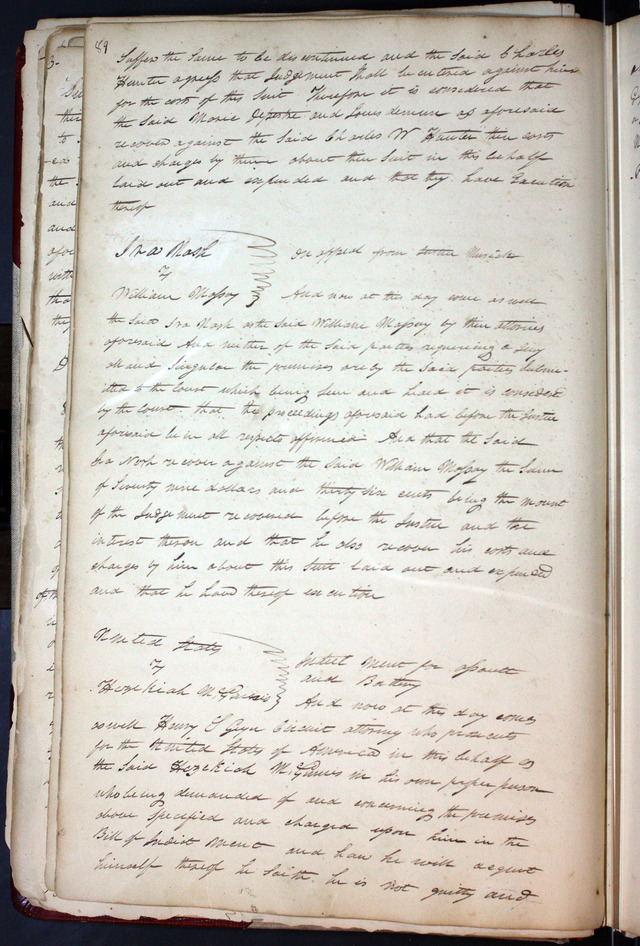 89
Suffer the same to be discontinued and the said Charles
Hunter agrees that Judgement shall be entered against him
for the costs of this suit Therefore it is considered that
the said Marie Depestre and Louis as aforesaid
recover against the said Charles W Hunter their costs
and charges by them about their suit in this behalf
laid out and expended and that they have Execution
thereof
Ira Nash
On appeal from Justice
William Massey
And now at this day come as well
the said Ira Nash as the said William Massey by their attornies
aforesaid And neither of the said parties requiring a Jury
all and singular the premises are by the said parties submi-
-tted to the Court which being seen and heard it is considered
by the court that the proceedings aforesaid had before the Justice
aforesaid be in all respects affirmed And that the said
Ira Nash recover against the said William Massey the sum
of Seventy nine dollars and thirty six cents being the mount
of the Judgement recovered before the Justice and the
interest theron and that he also recover his costs and
charges by him about this suit laid out and expended
and that he have thereof execution
United States
Indict ment for assault
and Battery
Hezekiah
And now at this day comes
as well Henry S Geyer Circuit attorney who prosecutes
for the United States of America in this behalf as
the said Hezekiah in his own proper person
who being demanded of and concerning the premises
above specified and charged upon him in the
Bill of Indict ment and how he will acquit
himself thereof he saith he is not guilty and